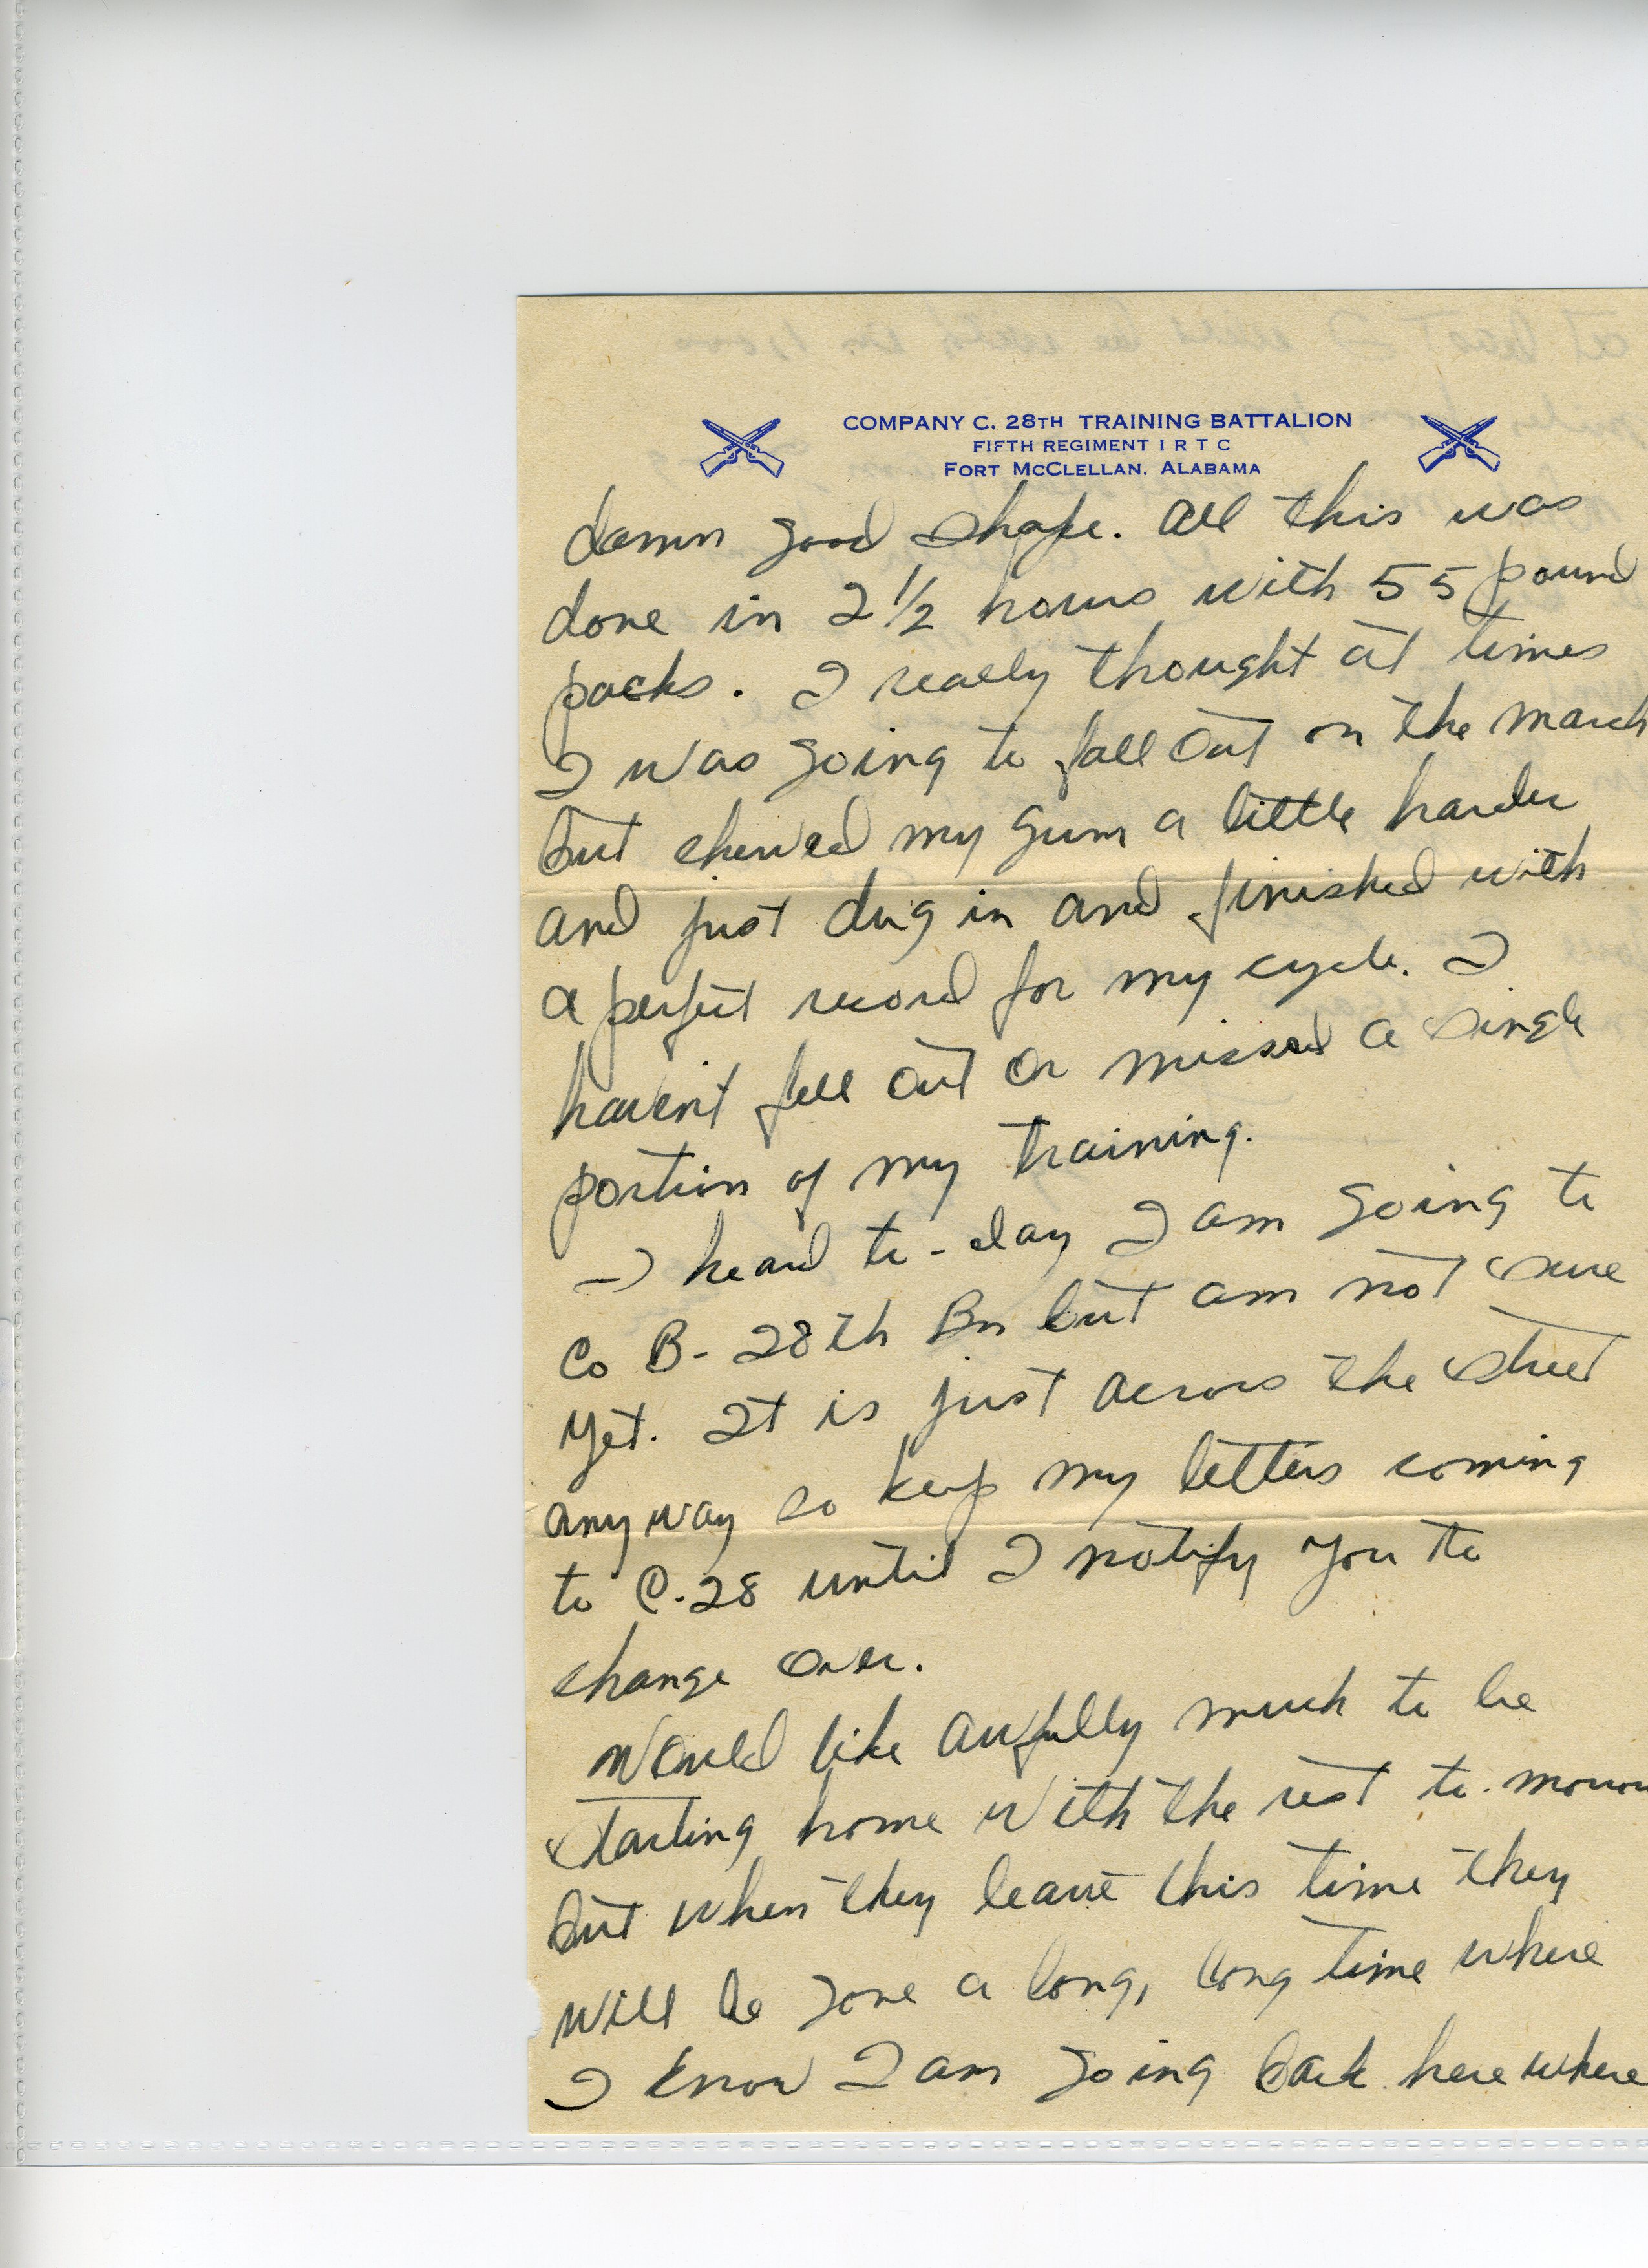 COMPANY C. 28TH TRAINING BATTALION
FIFTH REGIMENT I R T C
FORT MCCLELLAN. ALABAMA
damn good shape. All this was
done in 2 1/2 hours with 55 pound
packs. I really thought at times
I was going to fall out on the march
but chewed my gum a little harder
and just dug in and finished with
a perfect record for my cycle. I
haven't fell out or missed a single
portion of my training.
I heard to-day I am going to
Co B - 28th Bn but am not sure
yet. It is just across the street
anyway so keep my letters coming
to C-28 until I notify you to
change over.
Would like awfully much to be
starting home with the rest to-morrow
but when they leave this time they
will be gone a long, long time where
I know I am going back here where